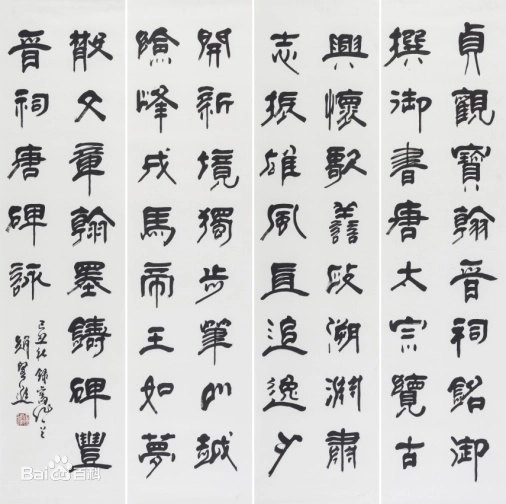 貞觀寶翰晉祠銘御
撰御書唐太宗覽古
興懷歌譱政溯淵肅
志振雄風且追逸少
開新境獨步筆山越
險峰戎馬帝王如夢
散文章翰墨鑄碑豐
晉祠唐碑詠
己丑秋錄
趙望進
Bai百科